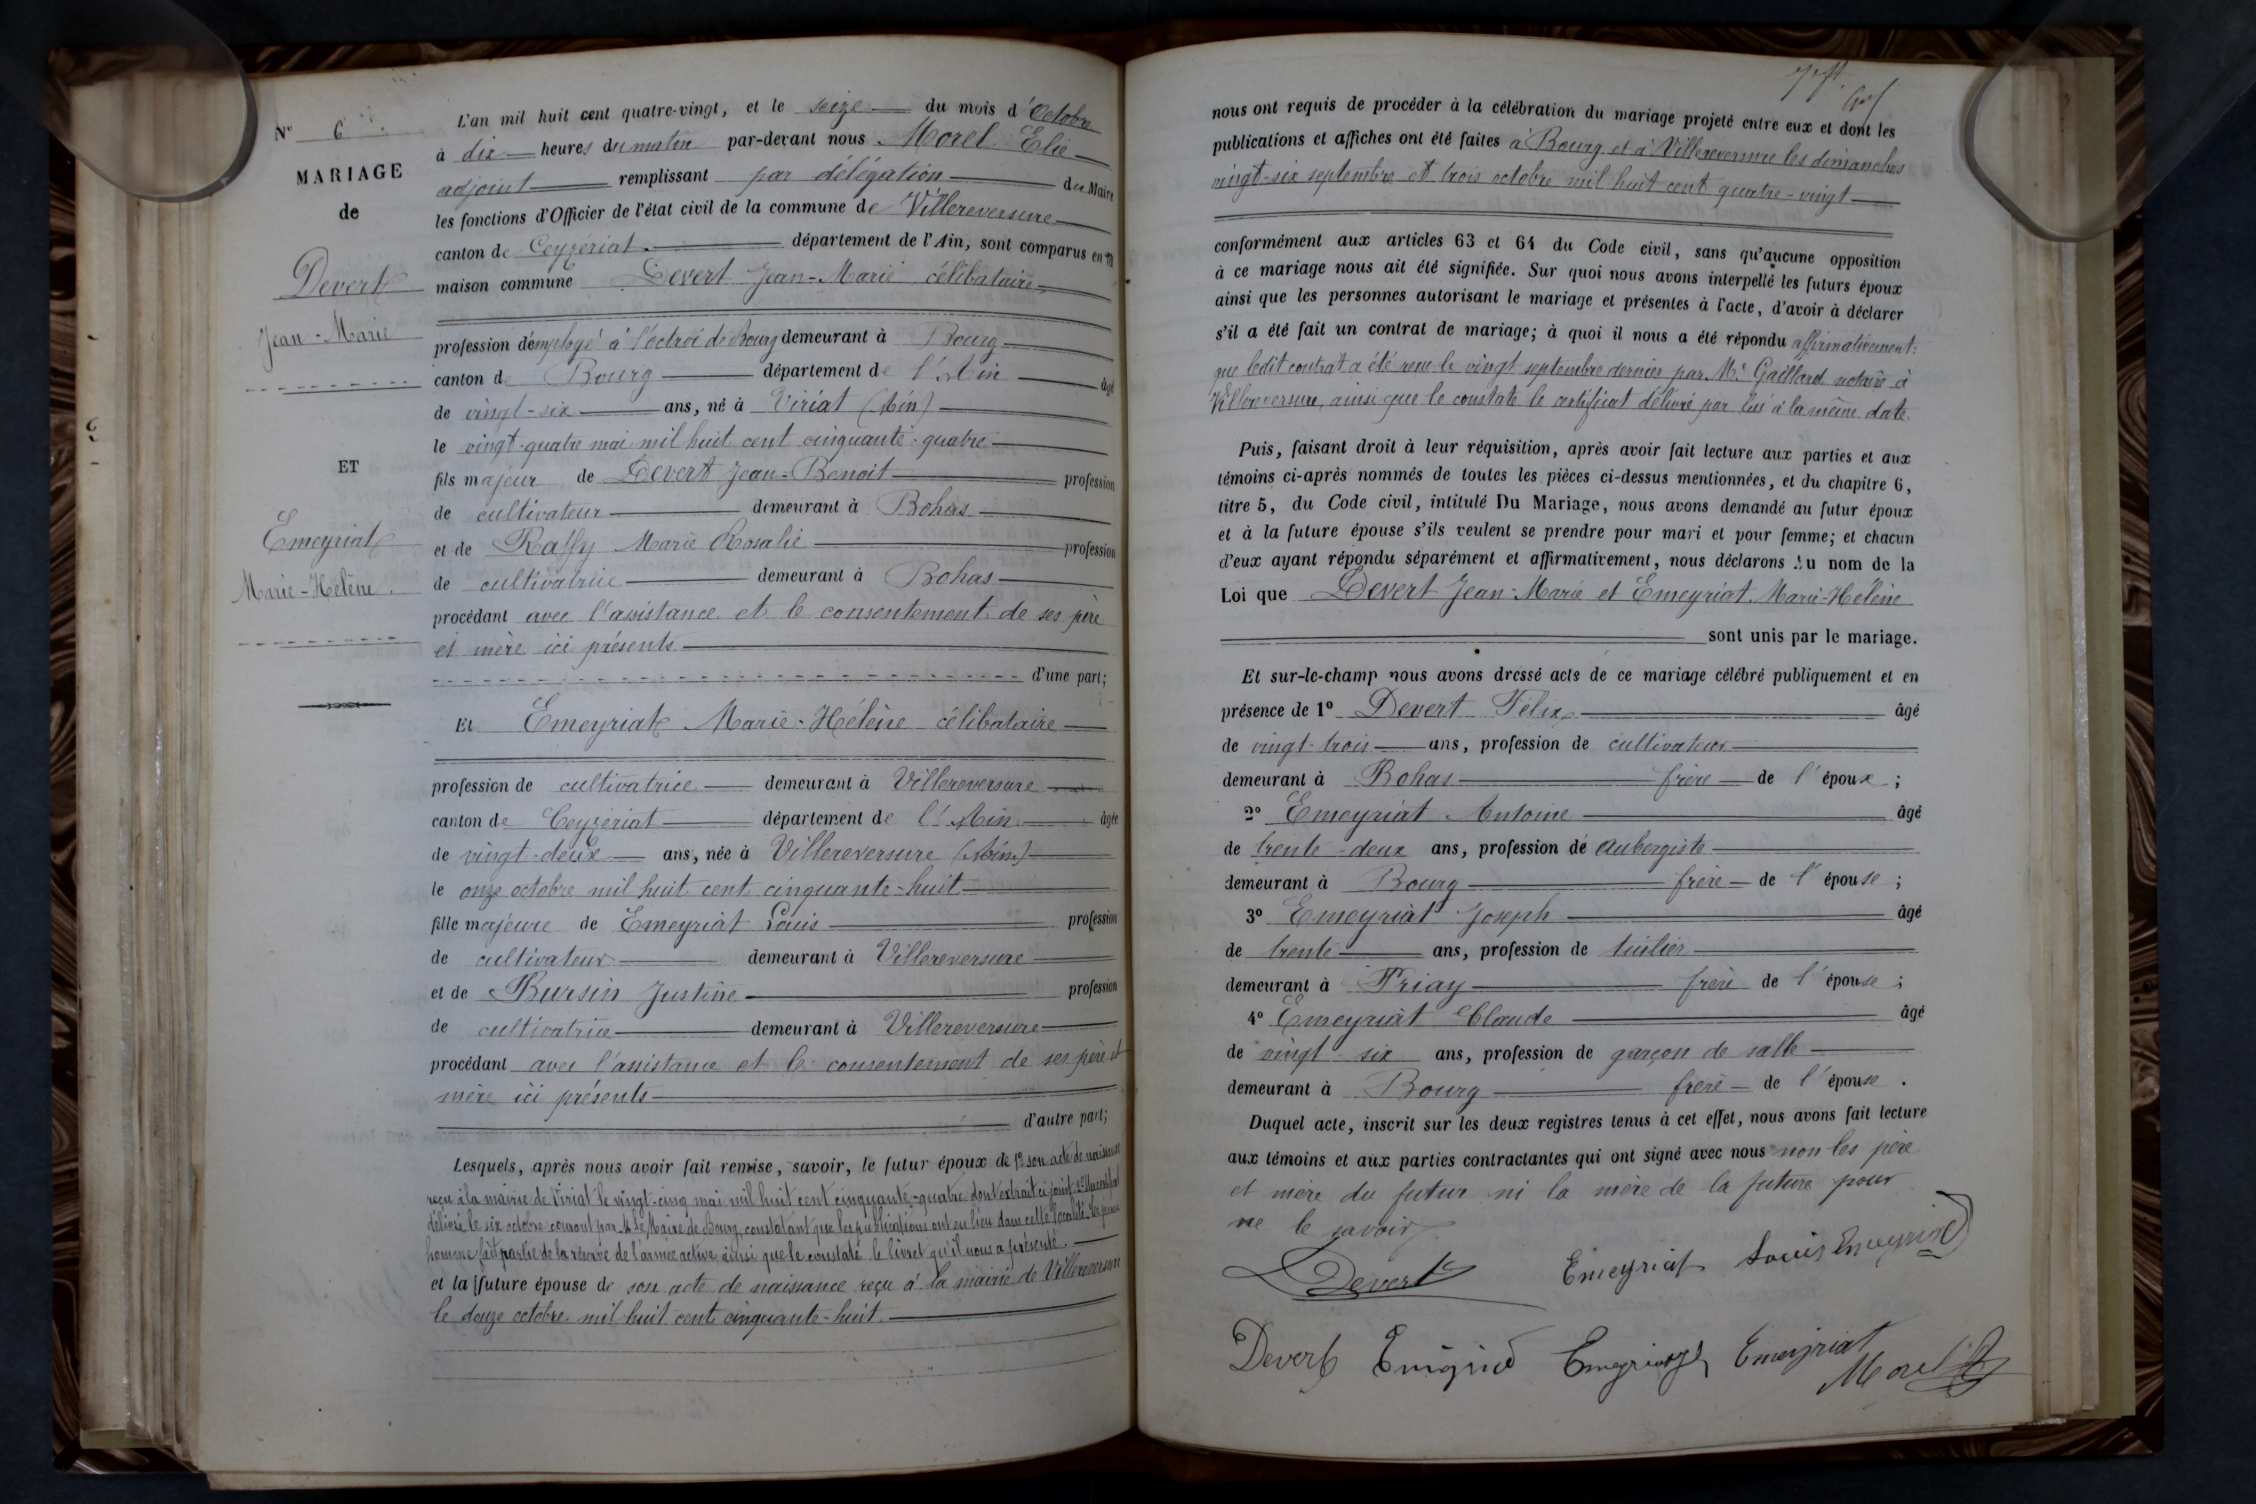 N° 6
MARIAGE
de
Devert
Jean-Marie
ET
Emeyriat
Marie-Hélène.
L'an mil huit cent quatre-vingt, et le seize du mois d'Octobre
à dix heures du matin par-devant nous Morel Elie
adjoint remplissant par délégation du Maire
les fonctions d'Officier de l'état civil de la commune de Villereversure
canton de Ceyzériat. département de l'Ain, sont comparus en la
maison commune Devert Jean-Marie célibataire
profession d'employé à l'octroi de Bourg demeurant à Bourg
canton de Bourg département de l'Ain âgé
de vingt-six ans, né à Viriat (Ain)
le vingt-quatre mai mil huit cent cinquante-quatre
fils majeur de Devert Jean-Benoit profession
de cultivateur demeurant à Bohas
et de Raffy Marie Rosalie profession
de cultivatrice demeurant à Bohas
procédant avec l'assistance et le consentement de ses père
et mère ici présents
d'une part;
Et Emeyriat Marie-Hélène célibataire
profession de cultivatrice demeurant à Villereversure
canton de Ceyzériat département de l'Ain âgée
de vingt-deux ans, née à Villereversure (Ain)
le onze octobre mil huit cent cinquante-huit
fille majeure de Emeyriat Louis profession
de cultivateur demeurant à Villereversure
et de Bursin Justine profession
de cultivatrice demeurant à Villereversure
procédant avec l'assistance et le consentement de ses père et
mère ici présents
d'autre part;
Lesquels, après nous avoir fait remise, savoir, le futur époux de 1° son acte de naissance
reçu à la mairie de Viriat le vingt-cinq mai mil huit cent cinquante-quatre dont extrait ci-joint 2° Un certificat
délivré le six octobre courant par M. le Maire de Bourg constatant que les publications ont eu lieu dans cette localité. Le jeune
homme fait partie de la réserve de l'armée active ainsi que le constate le livret qu'il nous a présenté.
et la future épouse de son acte de naissance reçu à la mairie de Villereversure
le douze octobre mil huit cent cinquante-huit.
nous ont requis de procéder à la célébration du mariage projeté entre eux et dont les
publications et affiches ont été faites à Bourg et à Villereversure les dimanches
vingt-six septembre et trois octobre mil huit cent quatre-vingt
conformément aux articles 63 et 64 du Code civil, sans qu'aucune opposition
à ce mariage nous ait été signifiée. Sur quoi nous avons interpellé les futurs époux
ainsi que les personnes autorisant le mariage et présentes à l'acte, d'avoir à déclarer
s'il a été fait un contrat de mariage; à quoi il nous a été répondu affirmativement:
que ledit contrat a été reçu le vingt septembre dernier par Me Gaillard notaire à
Villereversure, ainsi que le constate le certificat délivré par lui à la même date.
Puis, faisant droit à leur réquisition, après avoir fait lecture aux parties et aux
témoins ci-après nommés de toutes les pièces ci-dessus mentionnées, et du chapitre 6,
titre 5, du Code civil, intitulé Du Mariage, nous avons demandé au futur époux
et à la future épouse s'ils veulent se prendre pour mari et pour femme; et chacun
d'eux ayant répondu séparément et affirmativement, nous déclarons Au nom de la
Loi que Devert Jean-Marie et Emeyriat Marie-Hélène
sont unis par le mariage.
Et sur-le-champ nous avons dressé acte de ce mariage célébré publiquement et en
présence de 1° Devert Félix âgé
de vingt-trois ans, profession de cultivateur
demeurant à Bohas frère de l'époux;
2° Emeyriat Antoine âgé
de trente-deux ans, profession de aubergiste
demeurant à Bourg frère de l'épouse;
3° Emeyriat Joseph âgé
de trente ans, profession de tuilier
demeurant à Priay frère de l'épouse;
4° Emeyriat Claude âgé
de vingt six ans, profession de garçon de salle
demeurant à Bourg frère de l'épouse.
Duquel acte, inscrit sur les deux registres tenus à cet effet, nous avons fait lecture
aux témoins et aux parties contractantes qui ont signé avec nous non les père
et mère du futur ni la mère de la future pour
ne le savoir
Devert Emeyriat Louis Emeyriat
Devert Emeyriat Emeyriat Morel